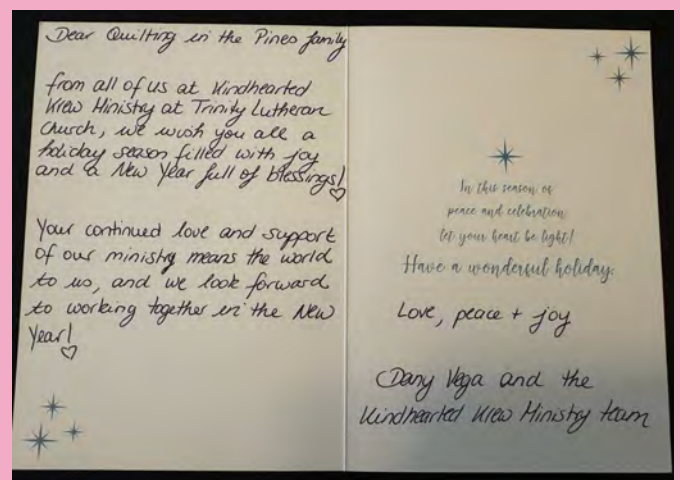 Dear Quilting in the Pines family
from all of us at Kindhearted
Krew Ministry at Trinity Lutheran
Church, we wish you all a
holiday season filled with joy
and a New Year full of blessings!
Your continued love and support
of our ministry means the world
to us, and we look forward
to working together in the New
Year!
In this season of
peace and celebration
let your heart be light!
Have a wonderful holiday.
Love, peace + joy
Dany Vega and the
Kindhearted Krew Ministry team